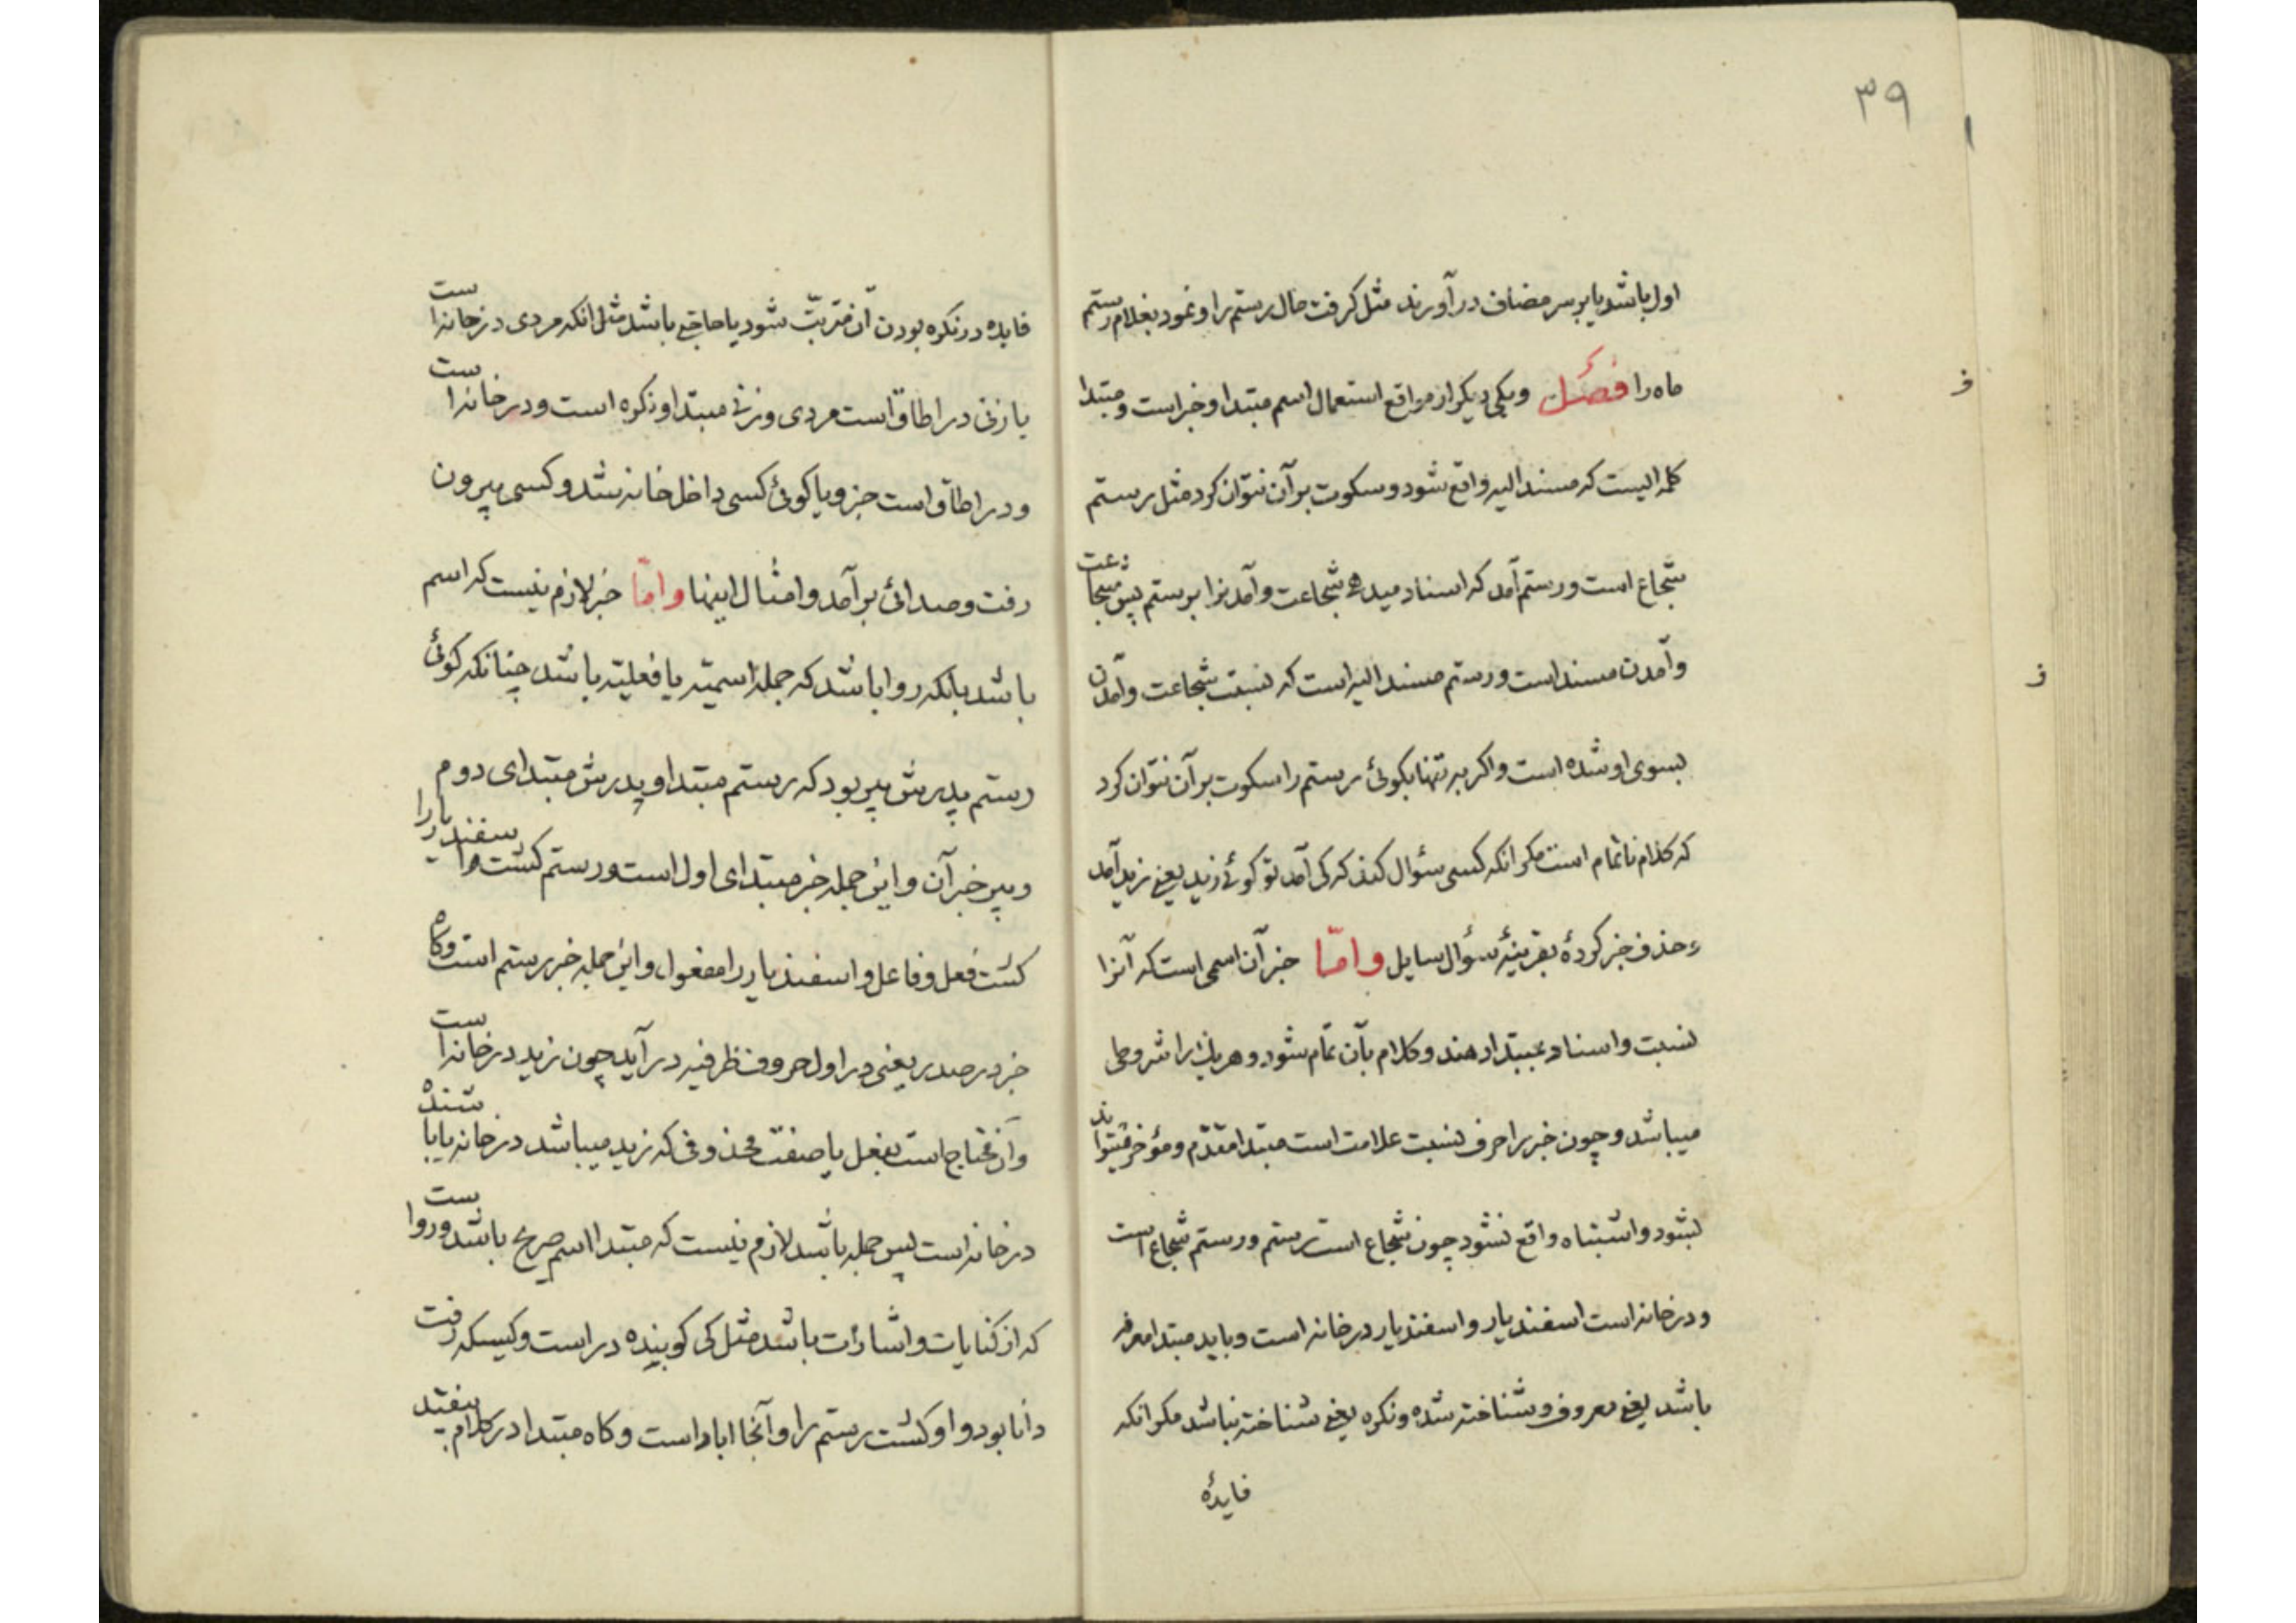 ۳۹
اول باشد یا بر سر مضاف در آورند مثل گرفت خال رستم را و نمود بغلام رستم
ماه را فصل و یکی دیکر از مواقع استعمال اسم مبتدا و خبر است و مبتدا
کلمه ایست که مسند الیه واقع شود و سکوت بر آن نتوان کرد مثل رستم
شجاع است و رستم آمد که اسناد میدهی شجاعت و آمدنرا برستم پس شجاعت
و آمدن مسند است و رستم مسند الیه است که نسبت شجاعت و آمدن
بسوی او شده است و اکر به تنها بکوئی رستم را سکوت بر آن نتوان کرد
که کلام ناتمام است مکر انکه کسی سئوال کند که کی آمد تو کوئی زید یعنی زید آمد
و حذف خبر کردهٔ بقرینهٔ سؤال سایل و امّا خبر آن اسمی است که آنرا
نسبت و اسناد بمبتدا دهند و کلام بآن تمام شود و هر یک را شروطی
میباشد و چون خبر را حرف نسبت علامت است مبتدا مقدّم و مؤخر میتواند
بشود و اشتباه واقع نشود چون شجاع است رستم و رستم شجاع است
و در خانه است اسفندیار و اسفندیار در خانه است و باید مبتدا معرفه
باشد یعنی معروف و شناخته شده و نکره یعنی شناخته نباشد مکر انکه
فایدهٔ
فایده در نکره بودن آن مترتّب شود یا حاجتی باشد مثل انکه مردی در خانه است
یا زنی در اطاق است مردی و زنی مبتدا و نکره است و در خانه است
و در اطاق است خبر و یا کوئی کسی داخل خانه شد و کسی بیرون
رفت و صدائی بر آمد و امثال اینها و امّا خبر لازم نیست که اسم
باشد بلکه روا باشد که جمله اسمیّه یا فعلیّه باشد چنانکه کوئی
رستم پدرش پیر بود که رستم مبتدا و پدرش مبتدای دوم
و پیر خبر آن و این جمله خبر مبتدای اول است و رستم کشت اسفندیار را
کشت فعل و فاعل و اسفندیار را مفعول و این جمله خبر رستم است و کاه
خبر در صدر یعنی در اول حروف ظرفیه در آید چون زید در خانه است
و آن محتاج است بفعل یا صفت محذوفی که زید میباشد در خانه یا باشنده
در خانه است پس جمله باشد لازم نیست که مبتدا اسم صریح باشد و روا است
که از کنایات و اشارات باشد مثل کی کوینده در است و کسیکه رفت
دانا بود و او کشت رستم را و آنجا اباد است و کاه مبتدا در کلام بیفتد